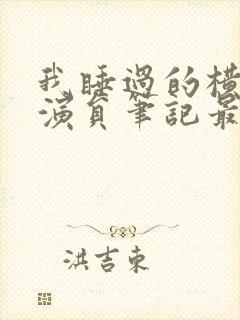 我睡過的橫
演員筆記最
洪吉東